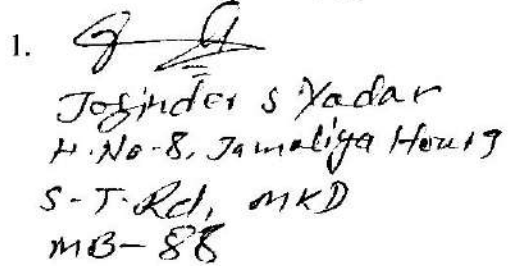 1.
Joginder S Yadav
H.No-8, Jamaliya Hourg
S-T-Rd, MKD
MB-88